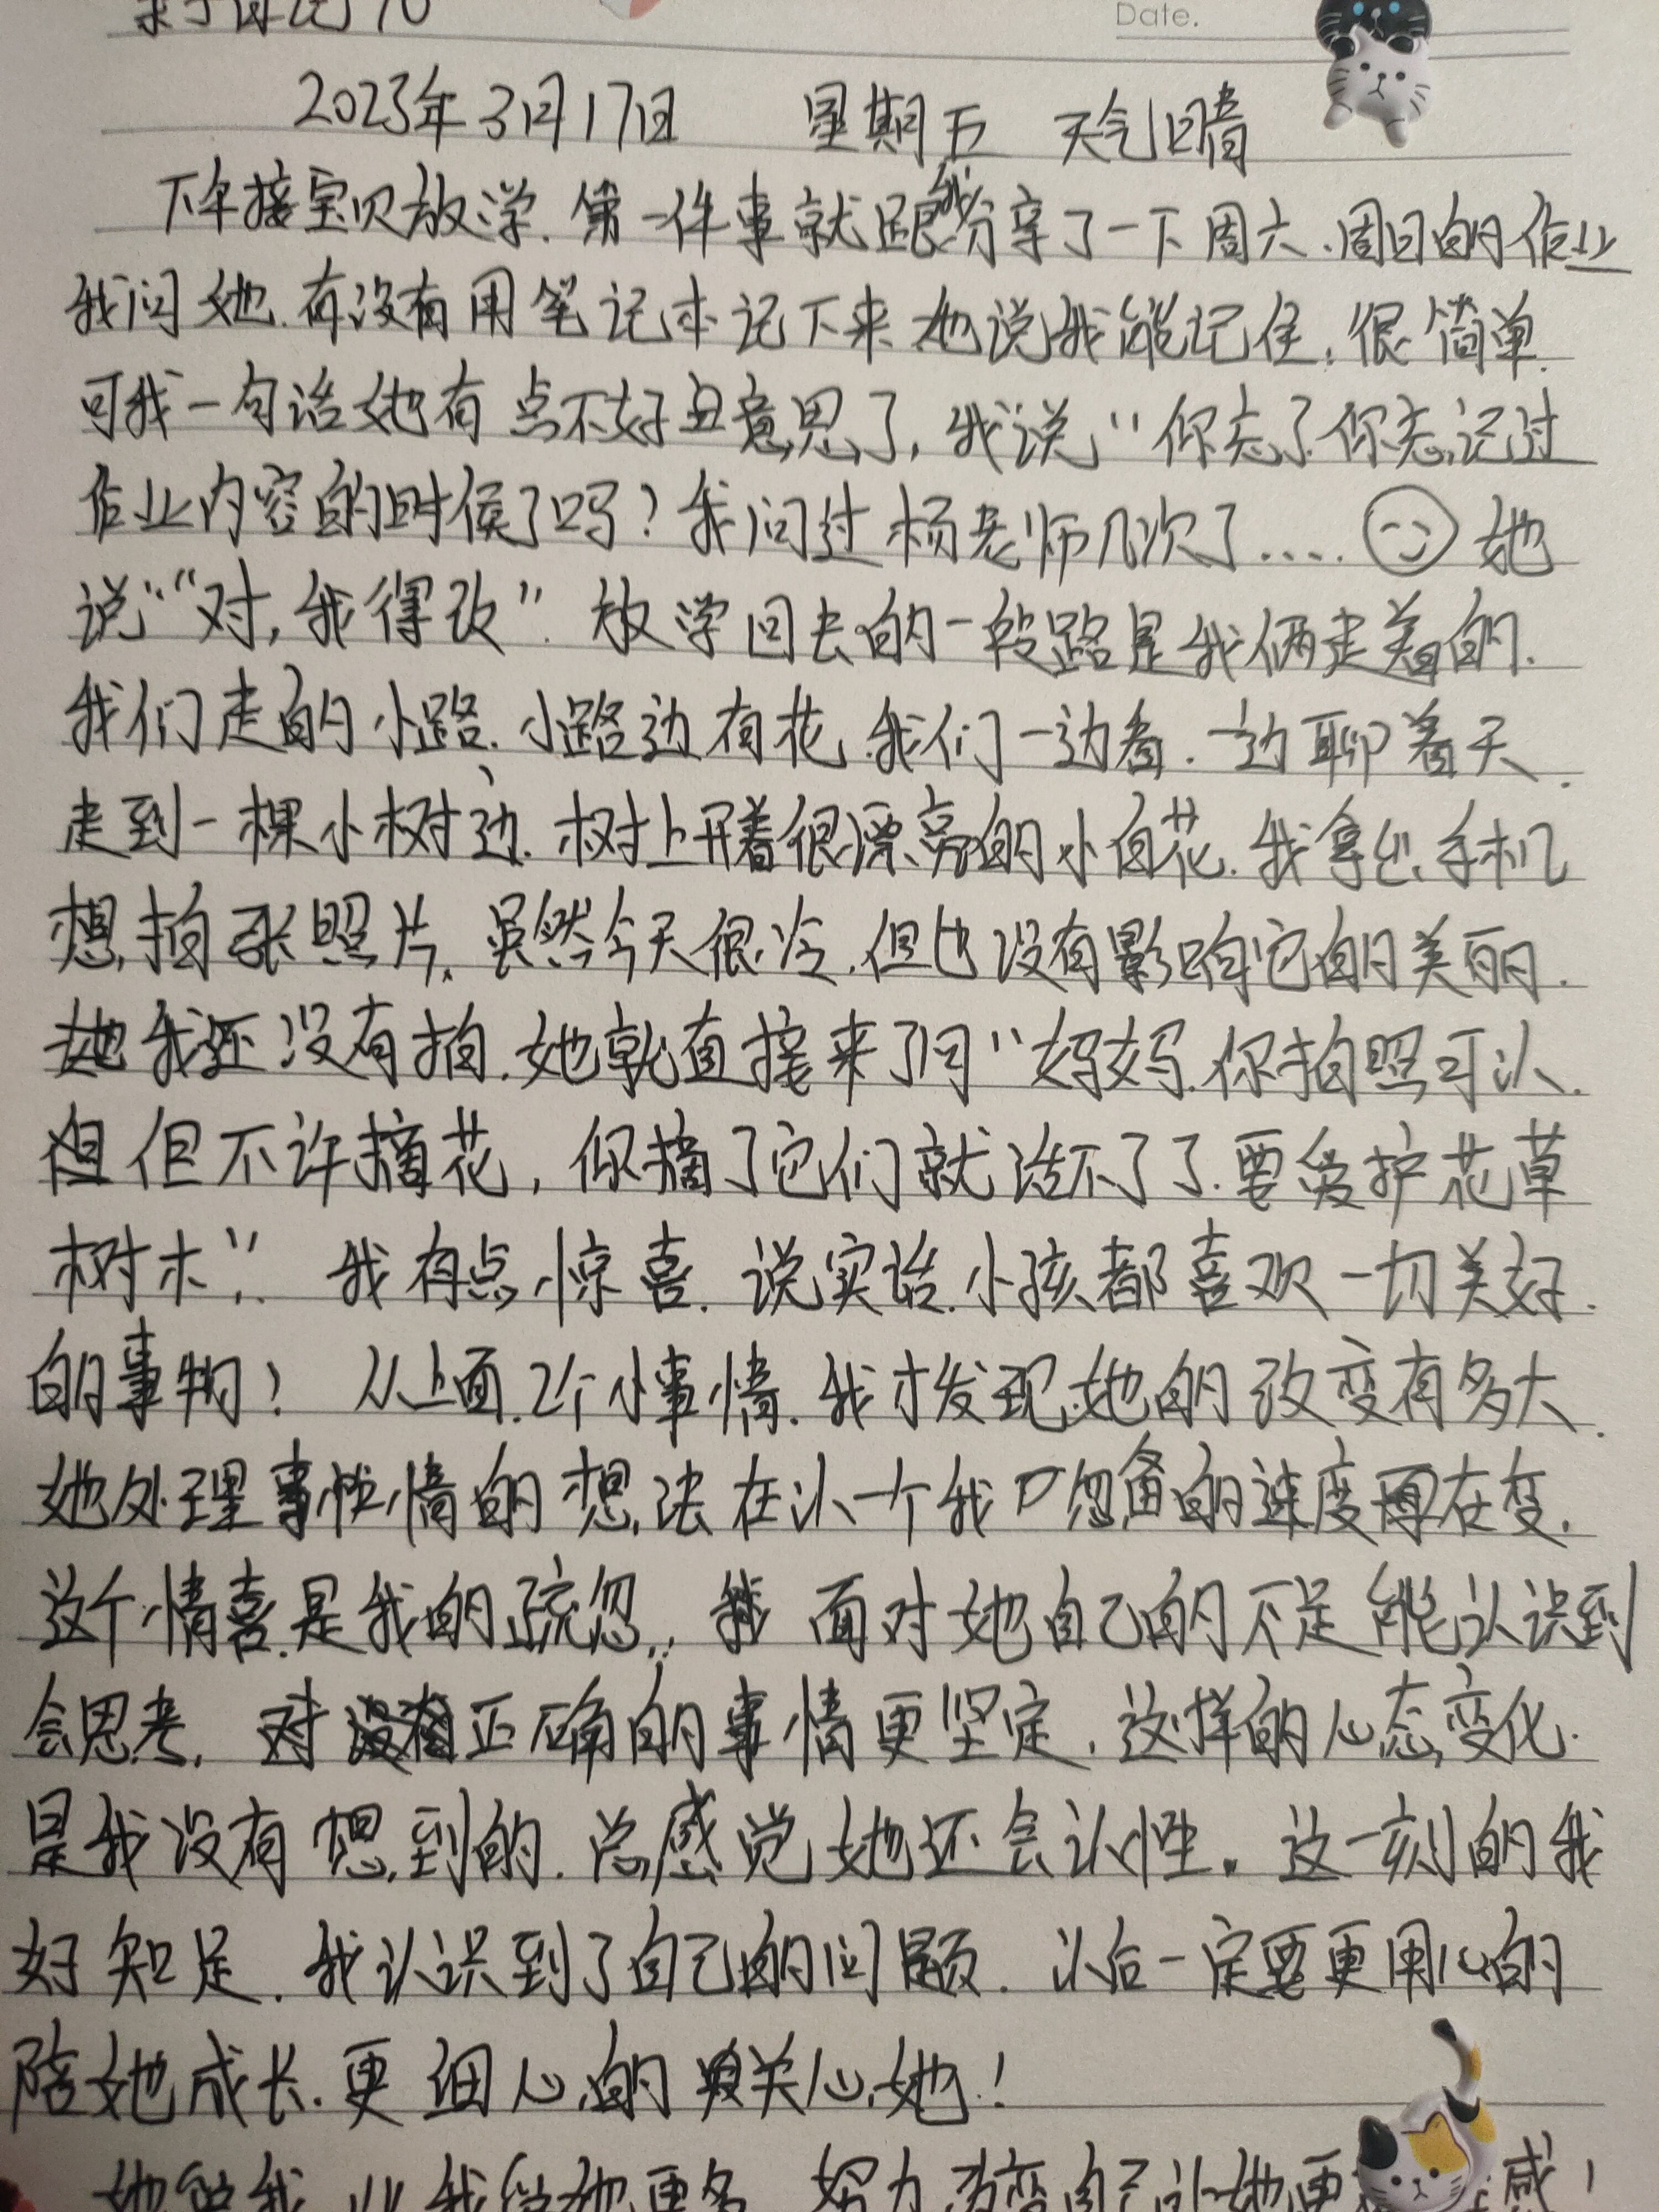 Date.
2023年3月17日 星期五 天气晴
下午接宝贝放学.第一件事就跟我分享了一下周六.周日的作业
我问她.有没有用笔记本记下来.她说我能记住.很简单.
可我一句话她有点不好意思了,我说“你忘了你忘记过
作业内容的时候了吗?我问过杨老师几次了.... 她
说“对,我得改”.放学回去的一段路是我俩走着的.
我们走的小路.小路边有花.我们一边看.一边聊着天.
走到一棵小树边.树上开着很漂亮的小白花.我拿出手机
想拍张照片.虽然今天很冷.但也没有影响它的美丽.
我还没有拍.她就直接来了问“妈妈.你拍照可以.
但不许摘花,你摘了它们就活不了了.要爱护花草
树木”. 我有点惊喜.说实话.小孩都喜欢一切美好.
的事物! 从上面.2个小事情.我才发现她的改变有多大.
她处理事情的想法在以一个我忽备的速度在变.
这个情喜.是我的疏忽.. 面对她自己的不足能认识到
会思考. 对正确的事情更坚定.这样的心态变化.
是我没有想到的.总感觉她还会认性。这一刻的我
好知足.我认识到了自己的问题.以后一定要更用心的
陪她成长.更细心的关心她!